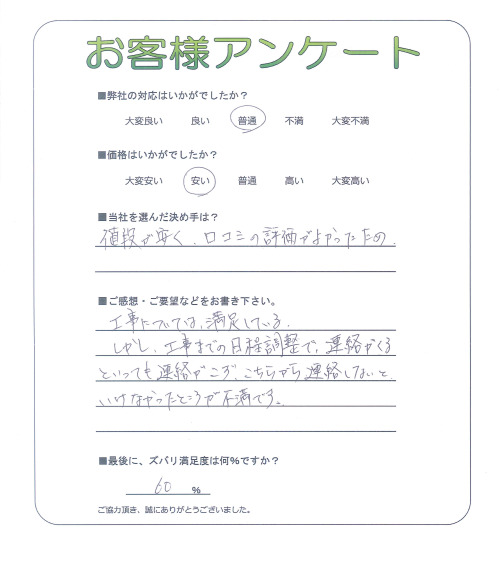 お客様アンケート
■弊社の対応はいかがでしたか？
大変良い 良い 普通 不満 大変不満
■価格はいかがでしたか？
大変安い 安い 普通 高い 大変高い
■当社を選んだ決め手は？
値段が安く、口コミの評価がよかったため.
■ご感想・ご要望などをお書き下さい。
工事については、満足している.
しかし、工事までの日程調整で、連絡がくる
といっても連絡がこず、こちらから連絡しないと
いけなかったところが不満です。
■最後に、ズバリ満足度は何％ですか？
60 ％
ご協力頂き、誠にありがとうございました。